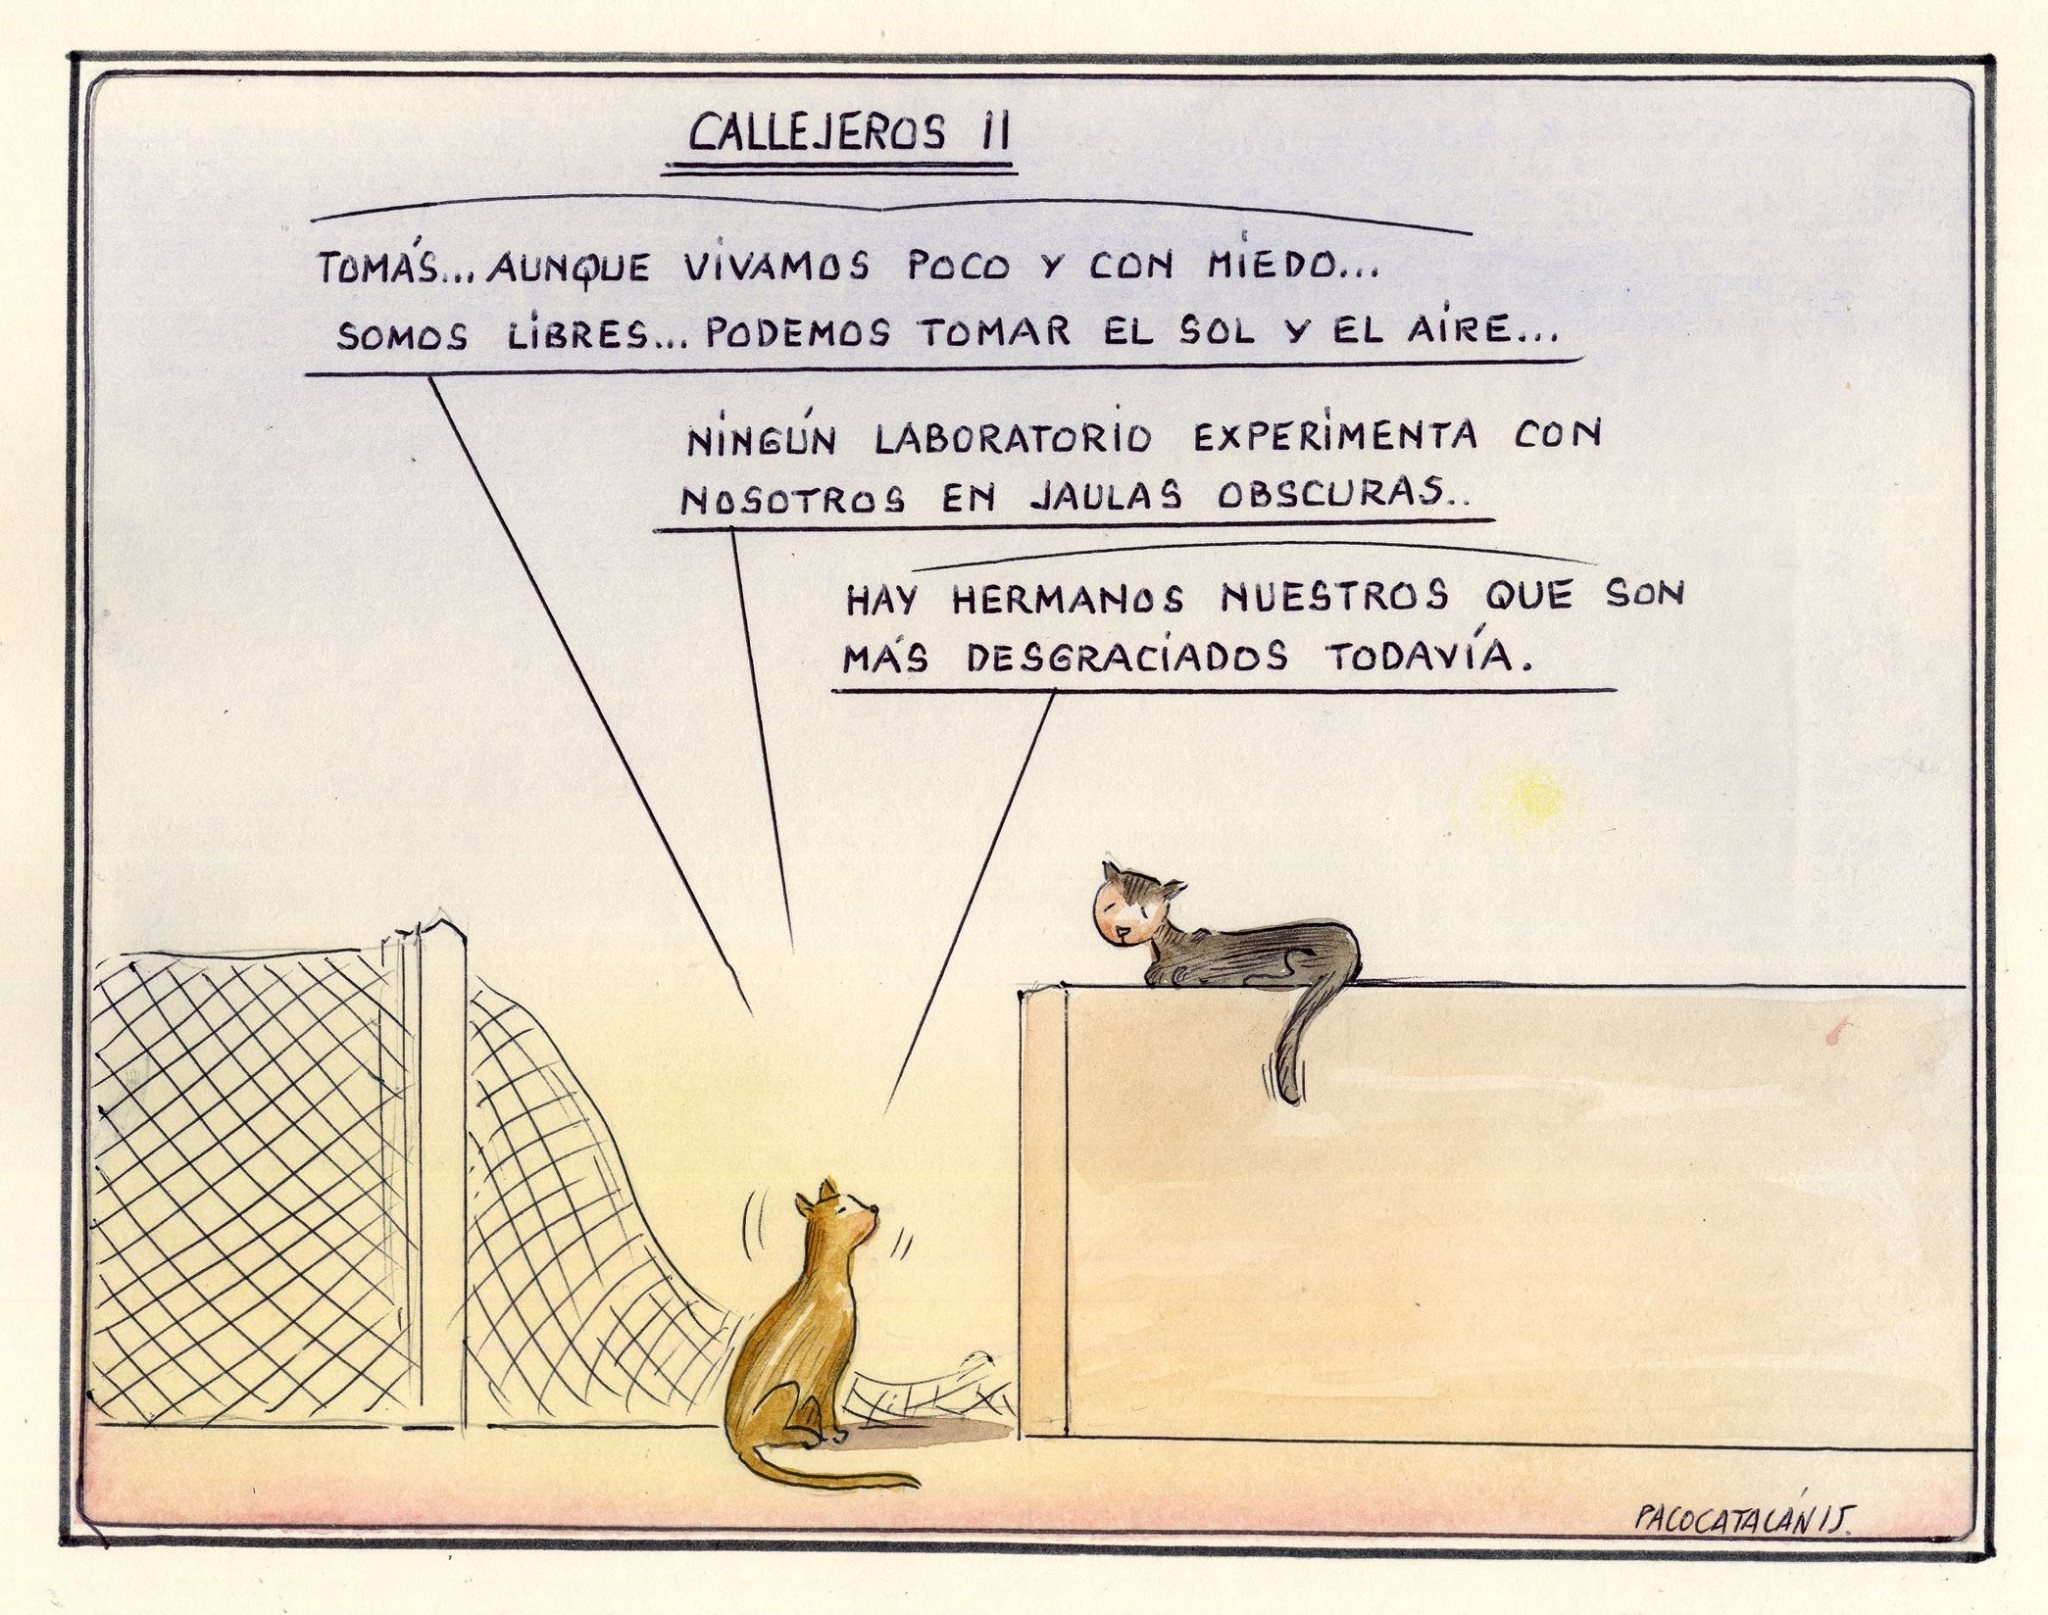 CALLEJEROS II
TOMÁS... AUNQUE VIVAMOS POCO Y CON MIEDO...
SOMOS LIBRES... PODEMOS TOMAR EL SOL Y EL AIRE...
NINGÚN LABORATORIO EXPERIMENTA CON
NOSOTROS EN JAULAS OBSCURAS..
HAY HERMANOS NUESTROS QUE SON
MÁS DESGRACIADOS TODAVÍA.
PACOCATALÁN15.